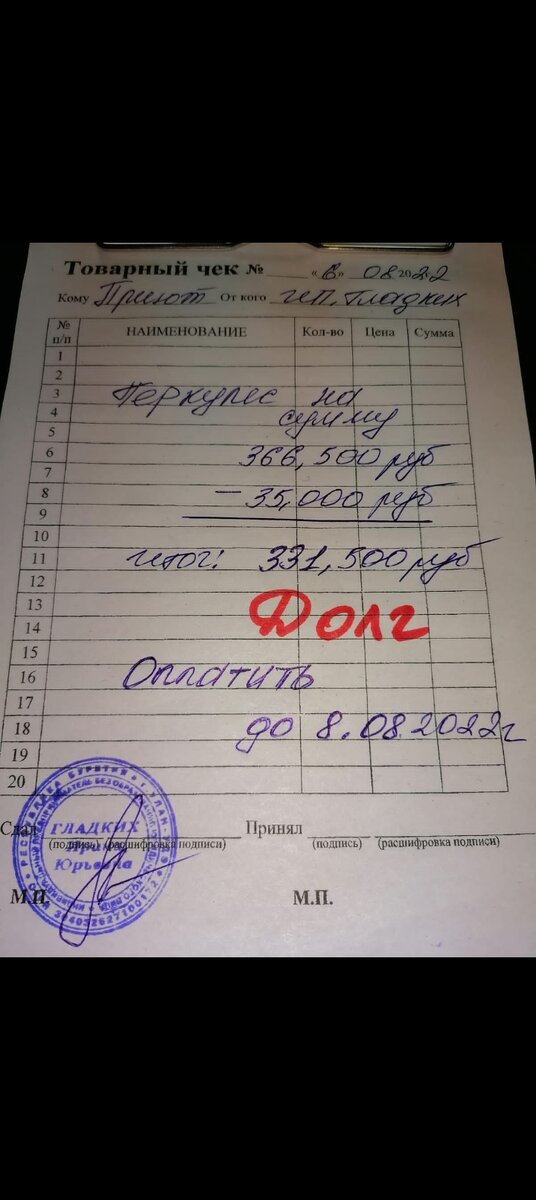 Товарный чек № ____ «6» 08 2022
Кому Приют От кого ИП. Гладких
№ п/п НАИМЕНОВАНИЕ Кол-во Цена Сумма
1
2
3 Геркулес на
4 сумму
5
6 366,500 руб
7
8 -35,000 руб
9
10
11 итог: 331,500 руб
12
13 Долг
14
15
16 Оплатить
17
18 до 8.08.2022г
19
20
Сдал Принял
(подпись) (расшифровка подписи) (подпись) (расшифровка подписи)
М.П. М.П.
РЕСПУБЛИКА БУРЯТИЯ • Г. УЛАН-УДЭ
ГЛАДКИХ
Юрьевна